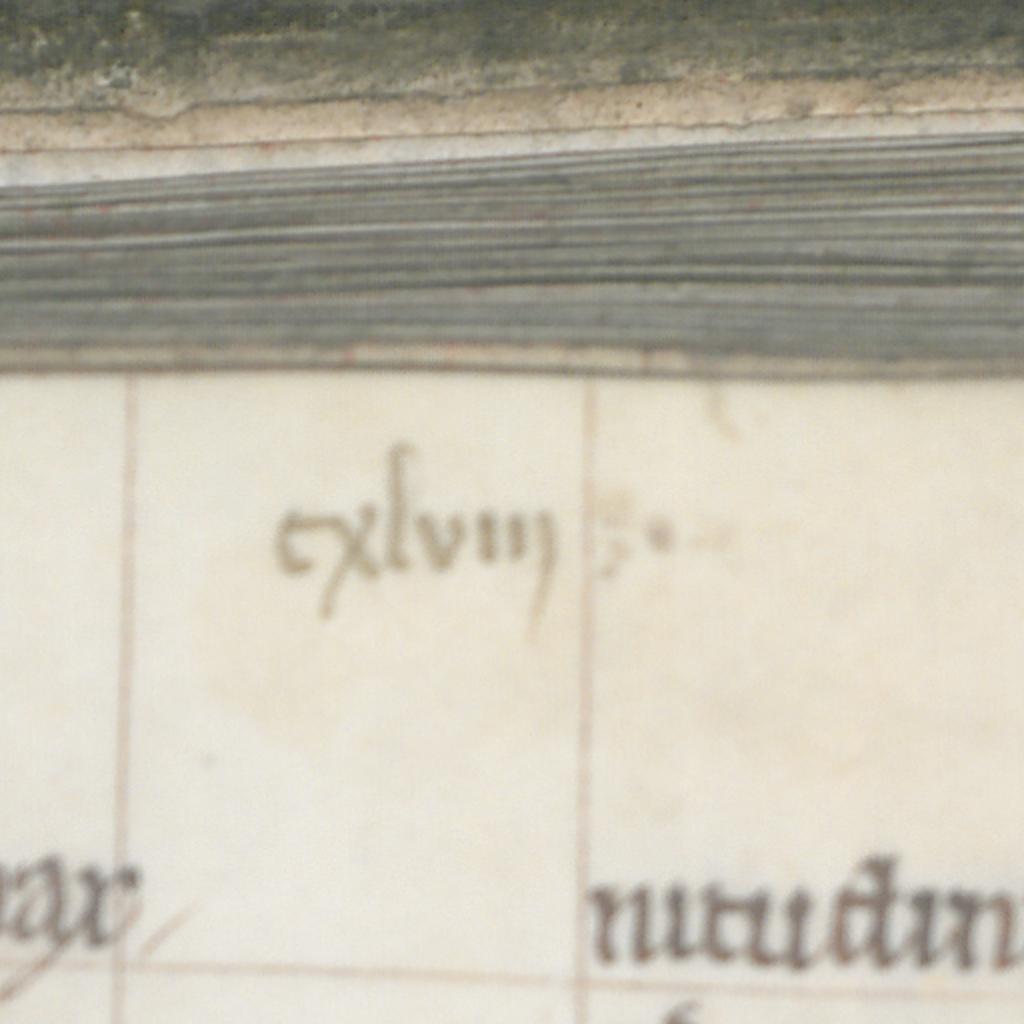 cxlviij
nitudin